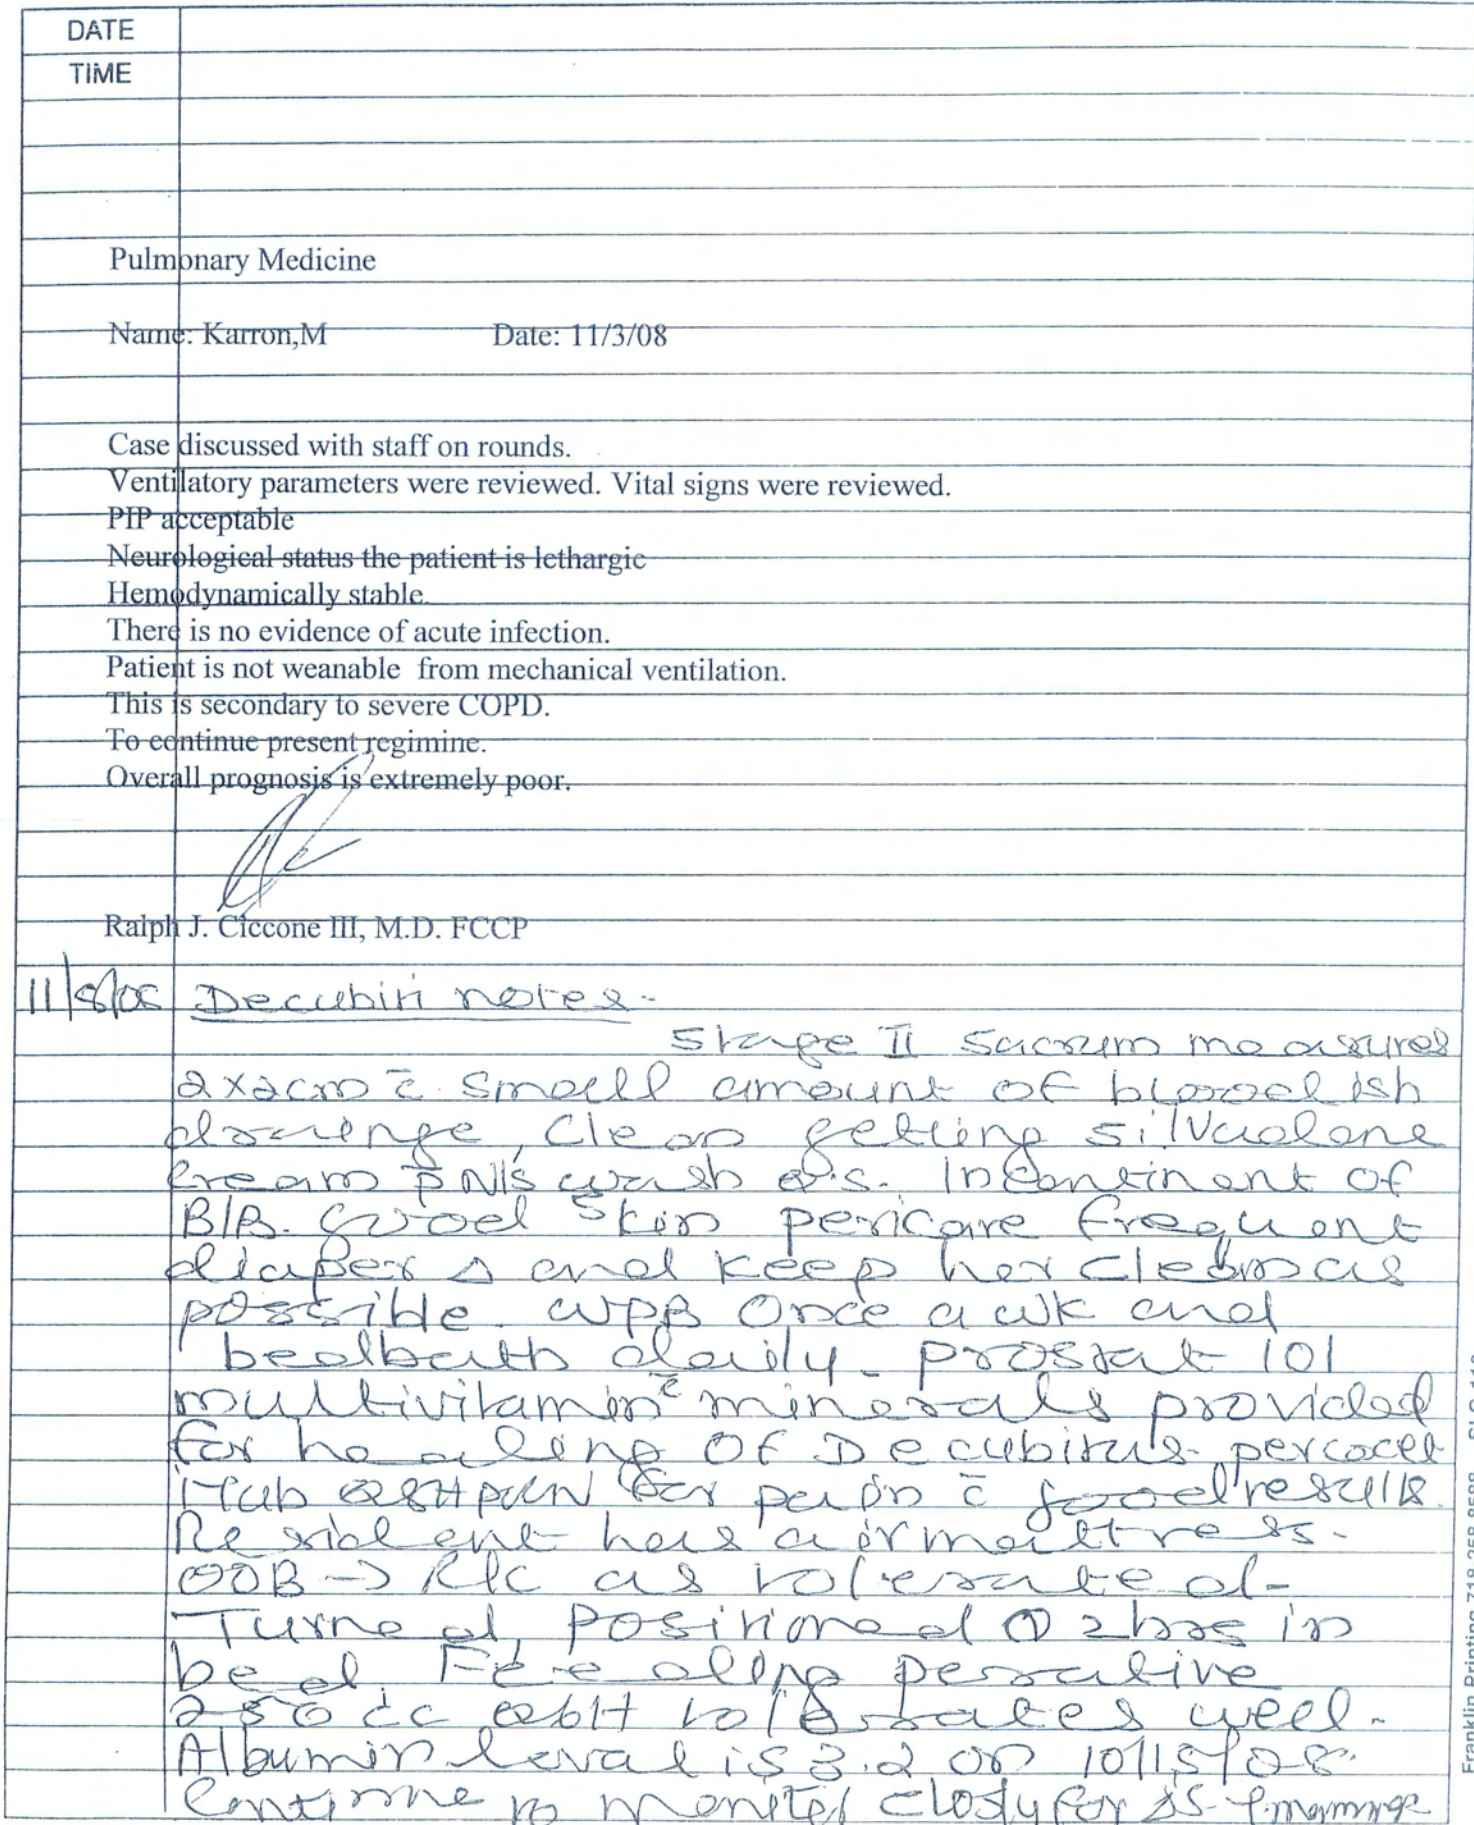 DATE
TIME
Pulmonary Medicine
Name: Karron,M Date: 11/3/08
Case discussed with staff on rounds.
Ventilatory parameters were reviewed. Vital signs were reviewed.
PIP acceptable
Neurological status the patient is lethargic
Hemodynamically stable.
There is no evidence of acute infection.
Patient is not weanable from mechanical ventilation.
This is secondary to severe COPD.
To continue present regimine.
Overall prognosis is extremely poor.
Ralph J. Ciccone III, M.D. FCCP
Decubiti notes-
Stage II Sacrum measures
2x2cm c̄ small amount of bloodish
drainge, Clean getting silvadene
cream p̄ N/S wash
Incontinent of
B/B. Good skin pericare frequent
diaper Δ and keep her clean as
possible. once a wk and
bedbath daily. prostat 101
multivitamin c̄ minerals provided
for healing OF Decubitus. percocet
i tab Q8H PRN for pain c̄ good results.
Resident has airmattress.
OOB → R/C as tolerated-
Turned, positioned 2hrs in
bed. Feeding perative
250 cc Q6H tolerates well.
Albumin leval is 3.2 on 10/15/08.
Continue to moniter closly for
Franklin Printing 718-258-8588